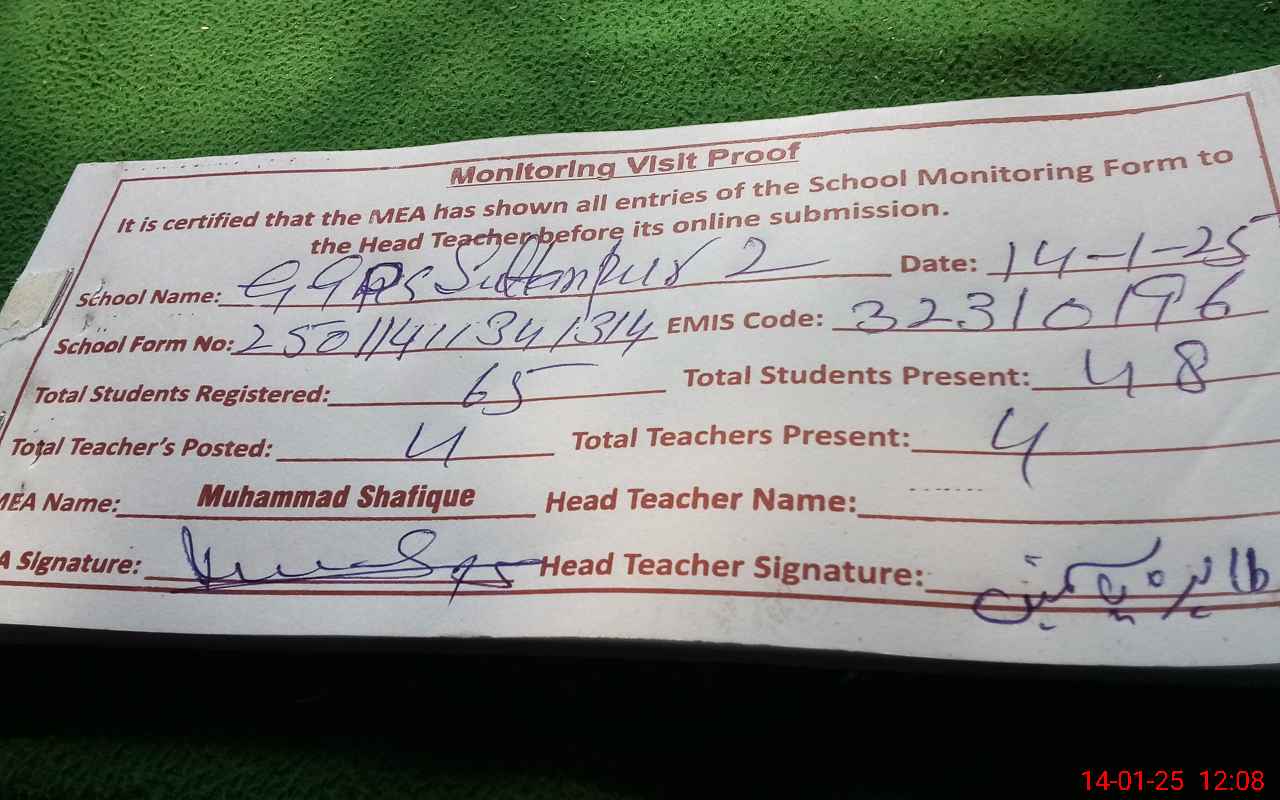 Monitoring Visit Proof
It is certified that the MEA has shown all entries of the School Monitoring Form to
the Head Teacher before its online submission.
School Name: GGPS Sultanpur 2 Date: 14-1-25
School Form No: 250114111341314 EMIS Code: 32310196
Total Students Registered: 65 Total Students Present: 48
Total Teacher's Posted: 4 Total Teachers Present: 4
MEA Name: Muhammad Shafique Head Teacher Name:
A Signature: Head Teacher Signature: طاہرہ یاسمین
14-01-25 12:08